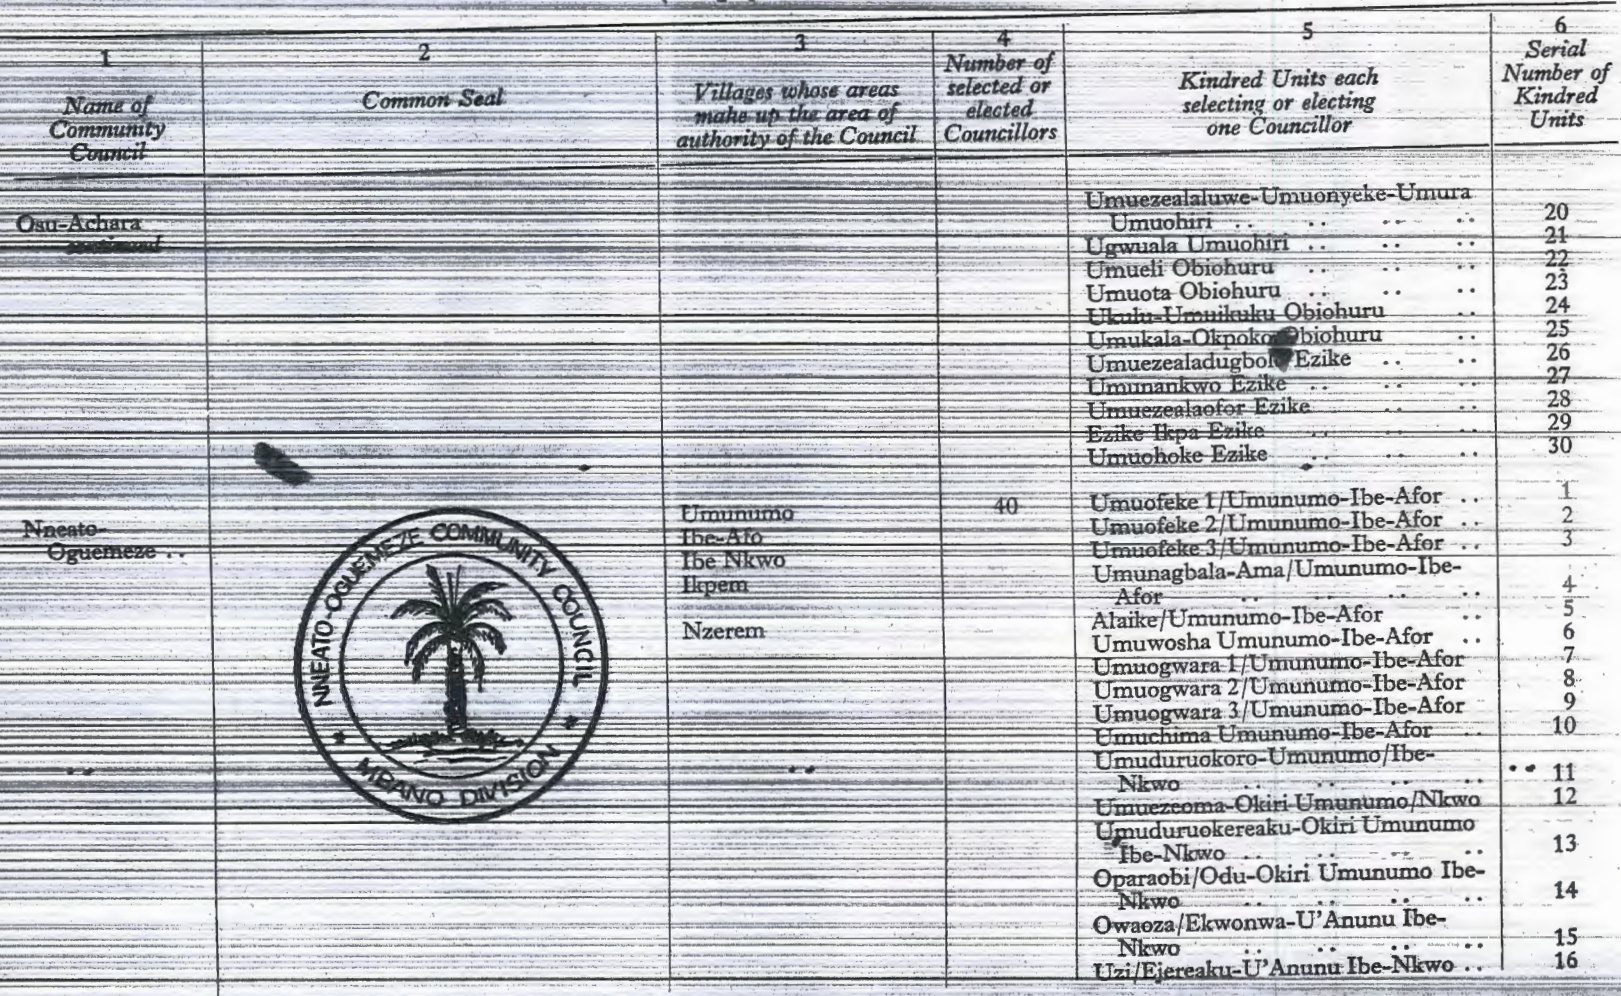 1
Name of
Community
Council
2
Common Seal
3
Villages whose areas
make up the area of
authority of the Council
4
Number of
selected or
elected
Councillors
5
Kindred Units each
selecting or electing
one Councillor
6
Serial
Number of
Kindred
Units
Osu-Achara
continued
Umuezealaluwe-Umuonyeke-Umura
Umuohiri .. .. .. 20
Ugwuala Umuohiri .. .. .. 21
Umueli Obiohuru .. .. .. 22
Umuota Obiohuru .. .. .. 23
Ukulu-Umuikuku Obiohuru .. 24
Umukala-Okpoko Obiohuru .. 25
Umuezealadugbolu Ezike .. .. 26
Umunankwo Ezike .. .. .. 27
Umuezealaofor Ezike .. .. 28
Ezike Ikpa Ezike .. .. .. 29
Umuohoke Ezike .. .. .. 30
Nneato-
Oguemeze ..
NNEATO-OGUEMEZE COMMUNITY COUNCIL
* MBANO DIVISION *
Umunumo
Ibe-Afo
Ibe Nkwo
Ikpem
Nzerem
40
Umuofeke 1/Umunumo-Ibe-Afor .. 1
Umuofeke 2/Umunumo-Ibe-Afor .. 2
Umuofeke 3/Umunumo-Ibe-Afor .. 3
Umunagbala-Ama/Umunumo-Ibe-
Afor .. .. .. .. 4
Alaike/Umunumo-Ibe-Afor .. 5
Umuwosha Umunumo-Ibe-Afor .. 6
Umuogwara 1/Umunumo-Ibe-Afor 7
Umuogwara 2/Umunumo-Ibe-Afor 8
Umuogwara 3/Umunumo-Ibe-Afor 9
Umuchima Umunumo-Ibe-Afor .. 10
Umuduruokoro-Umunumo/Ibe-
Nkwo .. .. .. .. 11
Umuezeoma-Okiri Umunumo/Nkwo 12
Umuduruokereaku-Okiri Umunumo
Ibe-Nkwo .. .. .. .. 13
Oparaobi/Odu-Okiri Umunumo Ibe-
Nkwo .. .. .. .. 14
Owaoza/Ekwonwa-U'Anunu Ibe-
Nkwo .. .. .. .. 15
Uzi/Ejereaku-U'Anunu Ibe-Nkwo .. 16